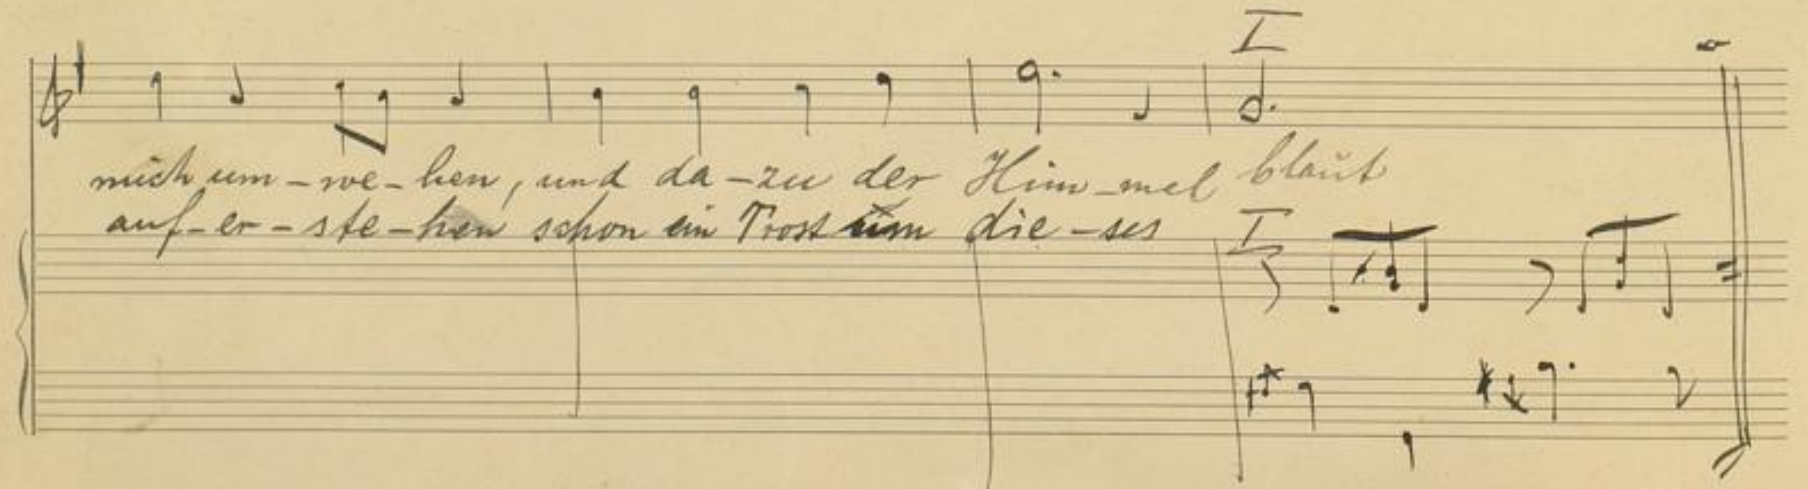 I
mich um-we-hen, und da-zu der Him-mel blaut
auf-er-ste-hen schon ein Trost um die-ses
I